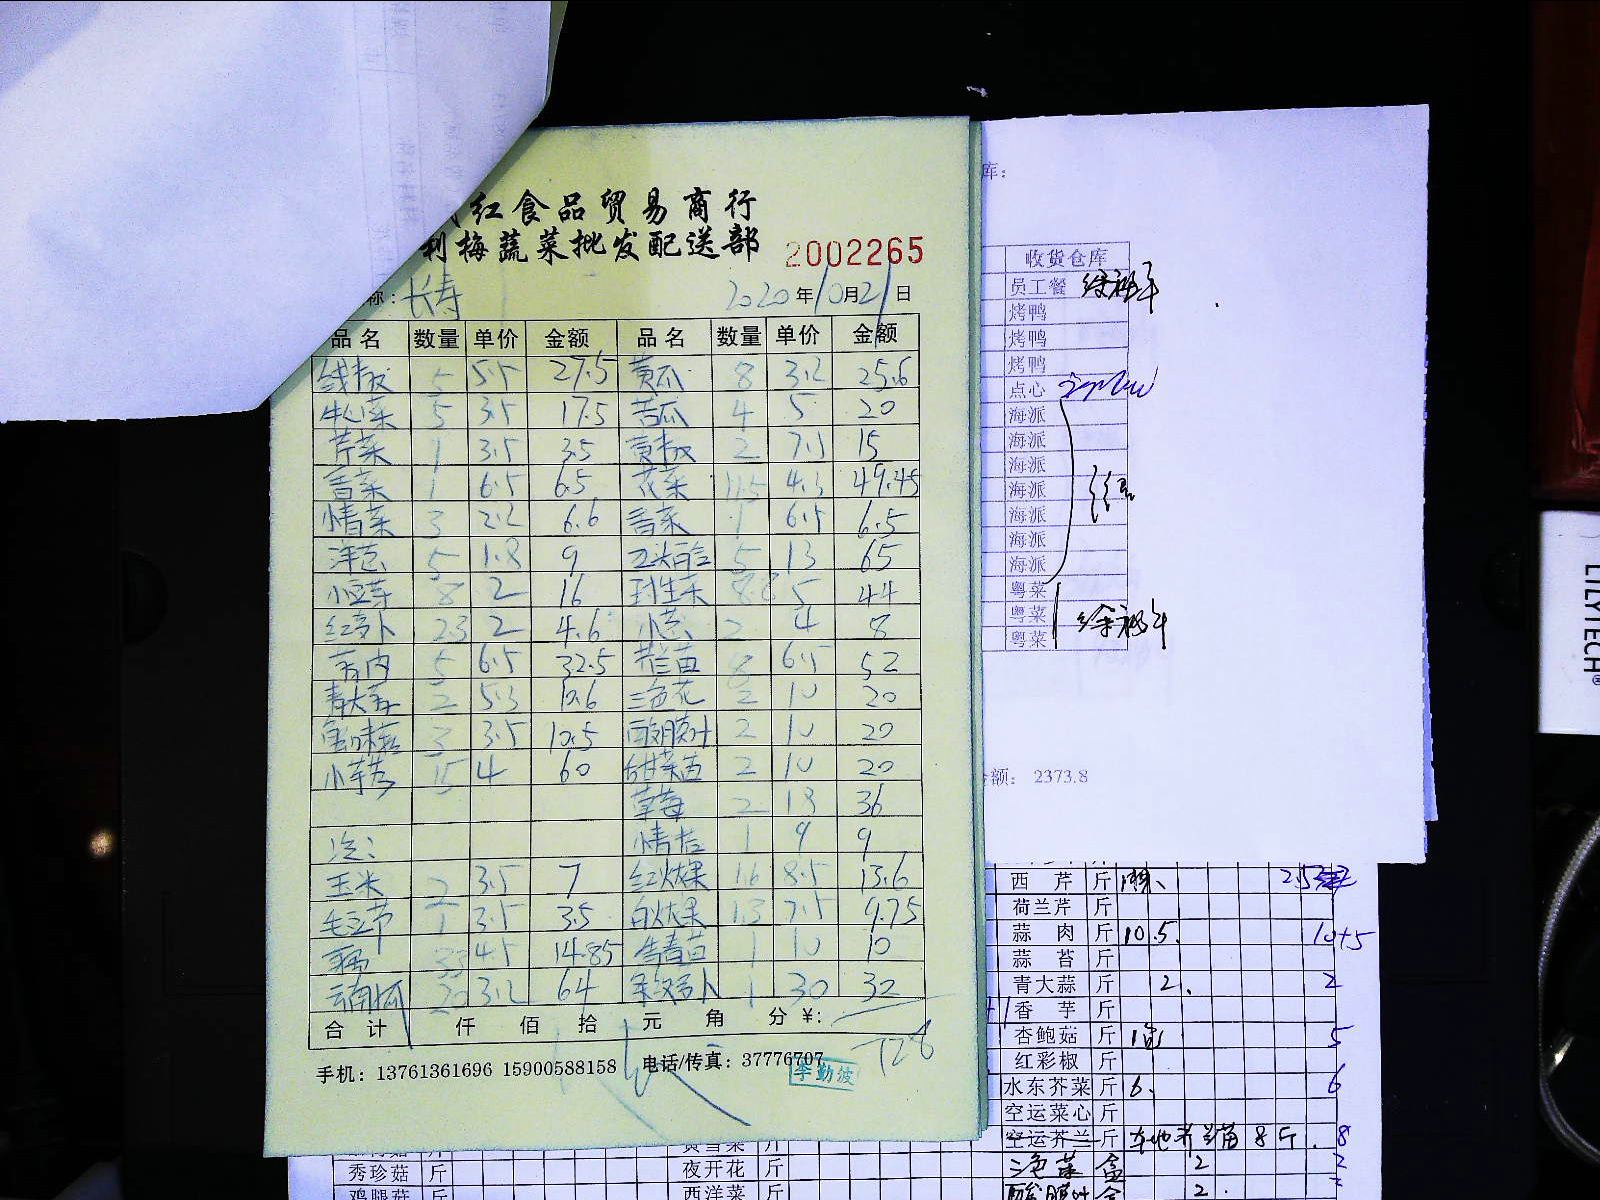 红食品贸易商行
利梅蔬菜批发配送部 2002265
称：长寿 2020年10月21日
品名 数量 单价 金额 品名 数量 单价 金额
线椒 5 5.5 27.5 黄瓜 8 3.2 25.6
牛心菜 5 3.5 17.5 苦瓜 4 5 20
芹菜 1 3.5 3.5 黄椒 2 7.5 15
香菜 1 6.5 6.5 花菜 11.5 4.3 49.45
3 2.2 6.6 香菜 1 6.5 6.5
洋葱 5 1.8 9 5 13 65
小豆芽 8 2 16 8.8 5 44
红萝卜 2.3 2 4.6 小葱 2 4 8
5 6.5 32.5 芥兰苗 8 6.5 52
青大蒜 2 5.3 10.6 三色花 2 10 20
3 3.5 10.5 酸膜叶 2 10 20
小芋艿 15 4 60 甜菜苗 2 10 20
草莓 2 18 36
次： 1 9 9
玉米 2 3.5 7 红火龙果 1.6 8.5 13.6
毛豆节 1 3.5 3.5 白火龙果 1.3 7.5 9.75
3.3 4.5 14.85 1 10 10
云南瓜 20 3.2 64 1 30 32
合计 仟 佰 拾 元 角 分 ¥:
728
手机：13761361696 15900588158 电话/传真：37776707
李勤波
库：
收货仓库
员工餐
烤鸭
烤鸭
烤鸭
点心
海派
海派
海派
海派
海派
海派
海派
粤菜
粤菜
粤菜
额： 2373.8
西芹 斤 2.5
荷兰芹 斤
蒜肉 斤 10.5. 10+5
蒜苔 斤
青大蒜 斤 2. 2
香芋 斤
杏鲍菇 斤 5
红彩椒 斤
水东芥菜 斤 6. 6
空运菜心 斤
空运芥兰 斤 本地芥兰苗8斤. 8
三色菜 盒 2 2
酸膜叶 盒 2.
斤 斤
秀珍菇 斤 夜开花 斤
鸡腿菇 斤 西洋菜 斤
LILYTECH®